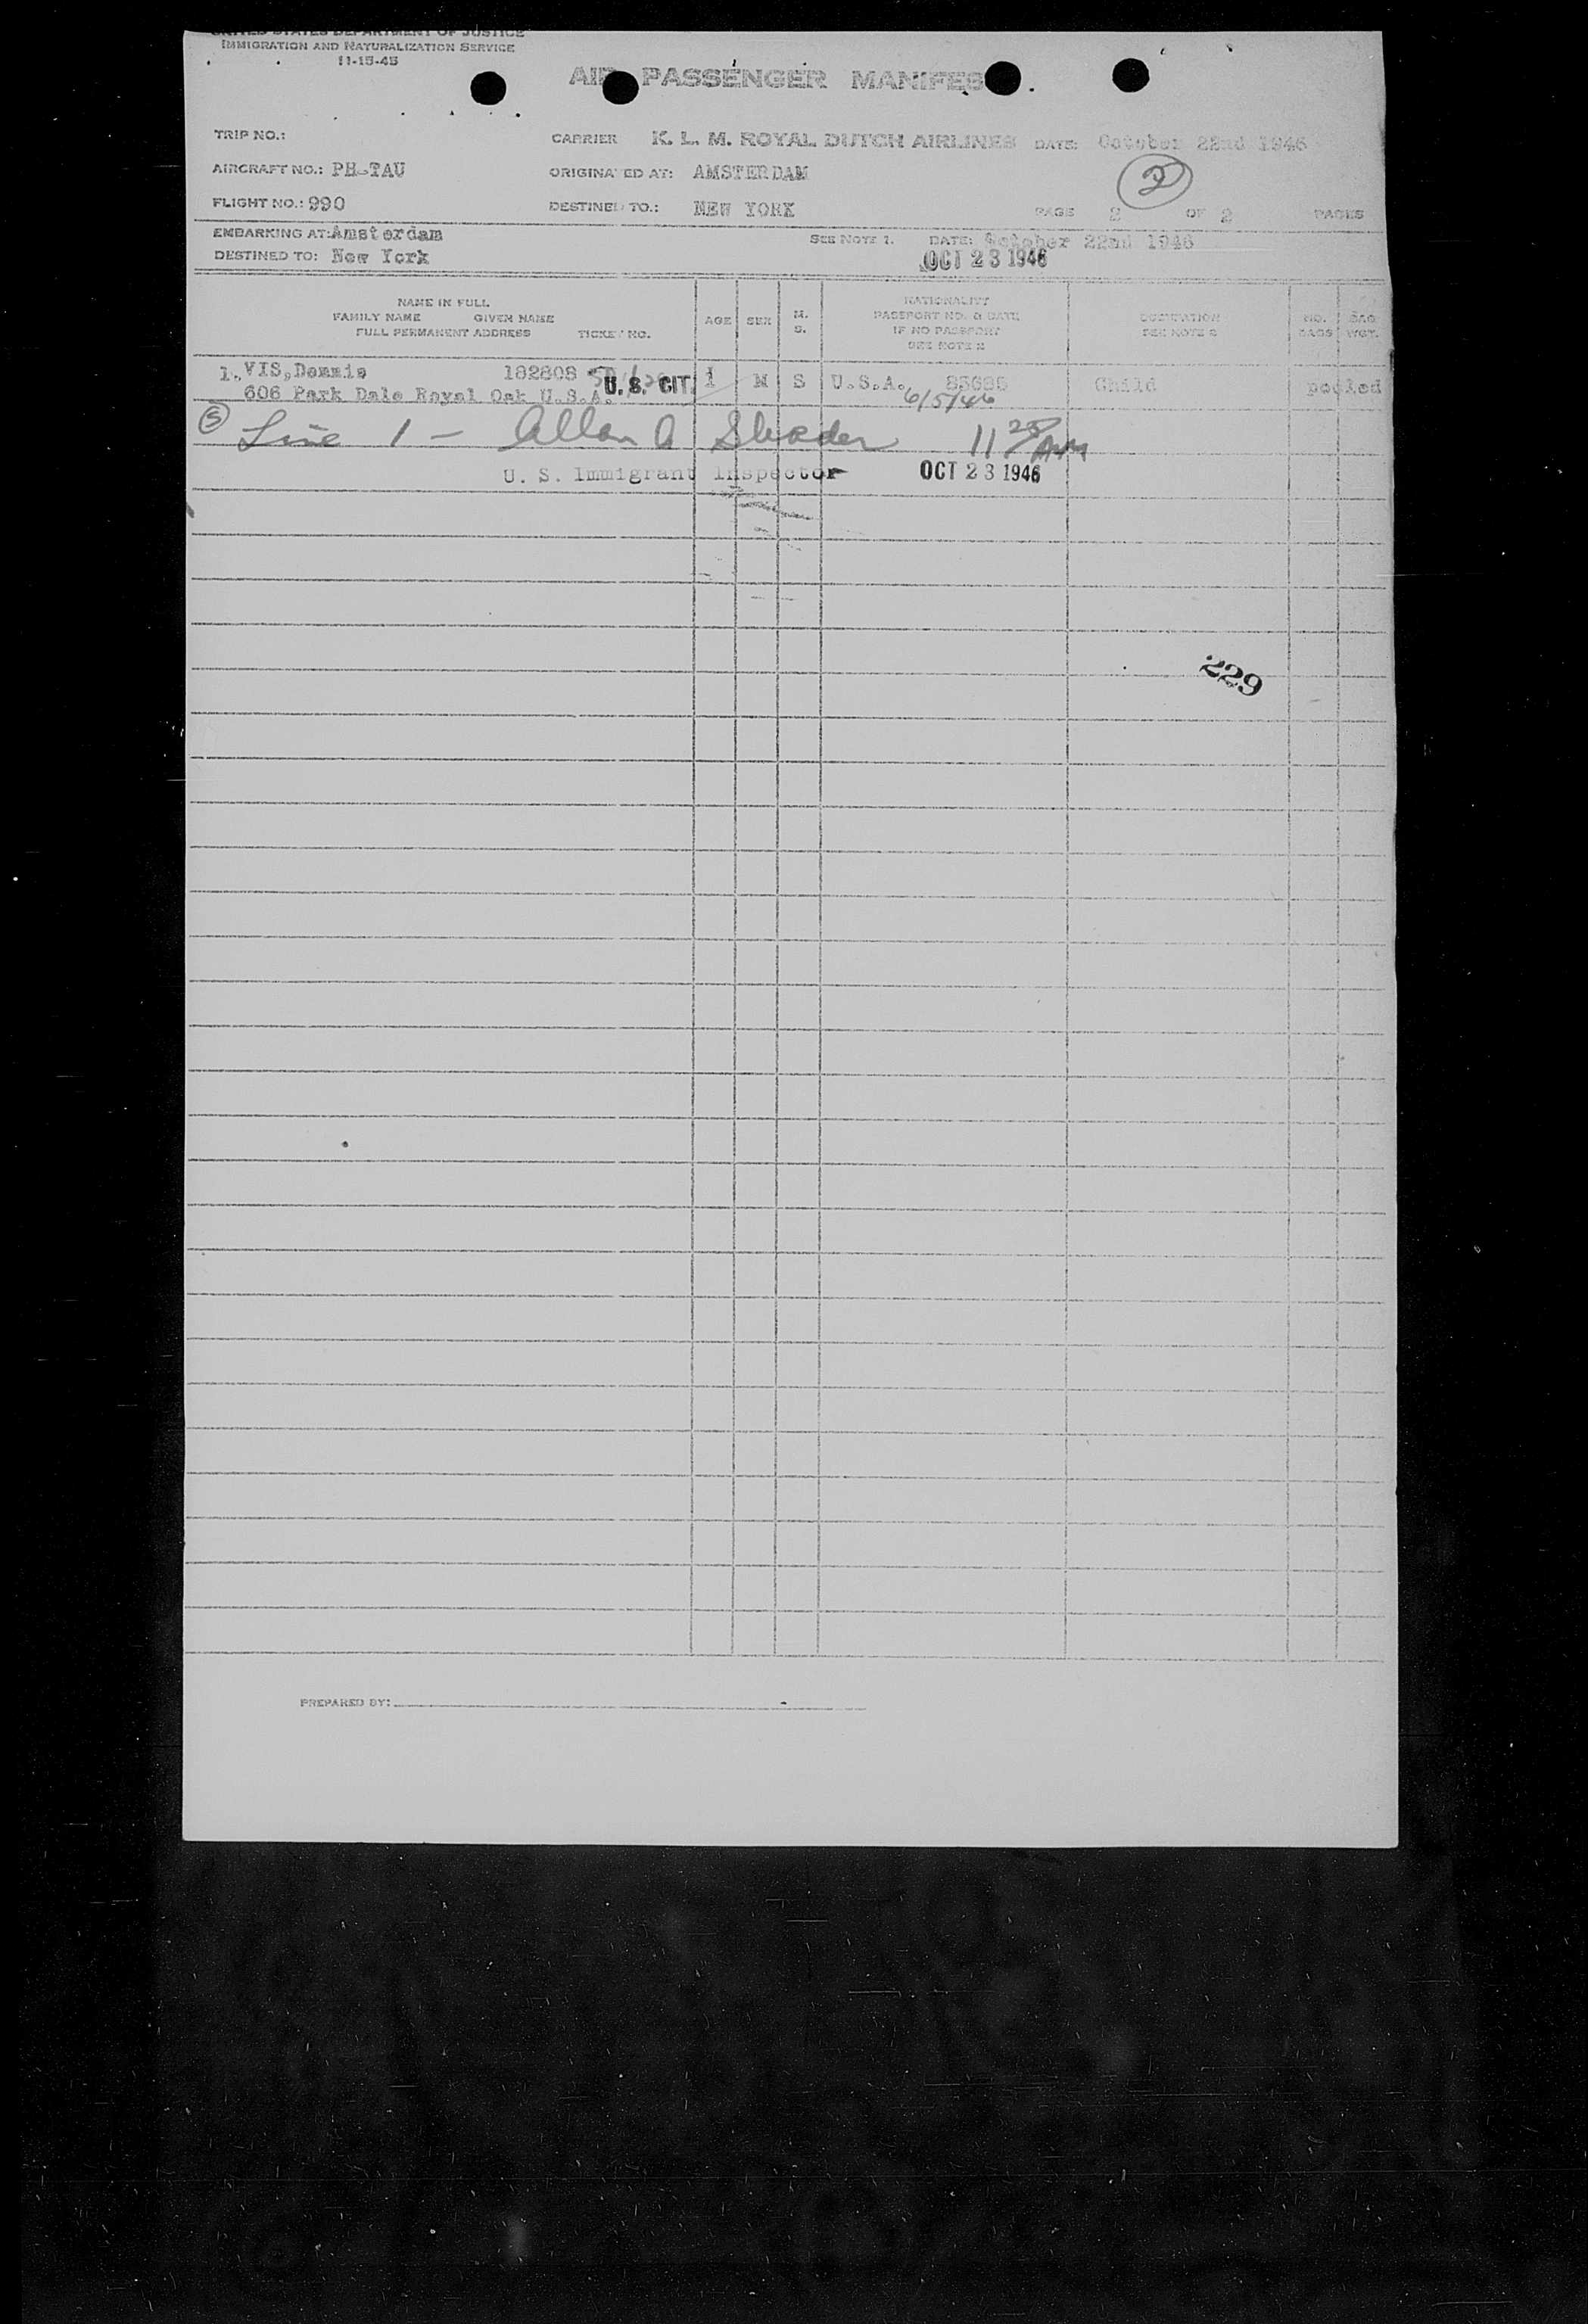 UNITED STATES DEPARTMENT OF JUSTICE
IMMIGRATION AND NATURALIZATION SERVICE
11-15-45
AIR PASSENGER MANIFES
TRIP NO.: CARRIER K. L. M. ROYAL DUTCH AIRLINES DATE: October 22nd 1946
AIRCRAFT NO.: PH-TAU ORIGINATED AT: AMSTERDAM 2
FLIGHT NO.: 990 DESTINED TO.: NEW YORK PAGE 2 OF 2 PAGES
EMBARKING AT: Amsterdam SEE NOTE 1. DATE: October 22nd 1946
DESTINED TO: New York OCT 23 1946
NAME IN FULL
FAMILY NAME GIVEN NAME
FULL PERMANENT ADDRESS TICKET NO. AGE SEX M. S. NATIONALITY PASSPORT NO. & DATE IF NO PASSPORT SEE NOTE 2 OCCUPATION SEE NOTE 2 NO. BAGS BAG WGT.
1. VIS, Dennis 182808 U. S. CIT. 1 M S U.S.A. 85685 Child pooled
606 Park Dale Royal Oak U.S.A. 6/5/46
5 Line 1 - Allan A 11 25 AM
U. S. Immigrant Inspector OCT 23 1946
229
PREPARED BY: